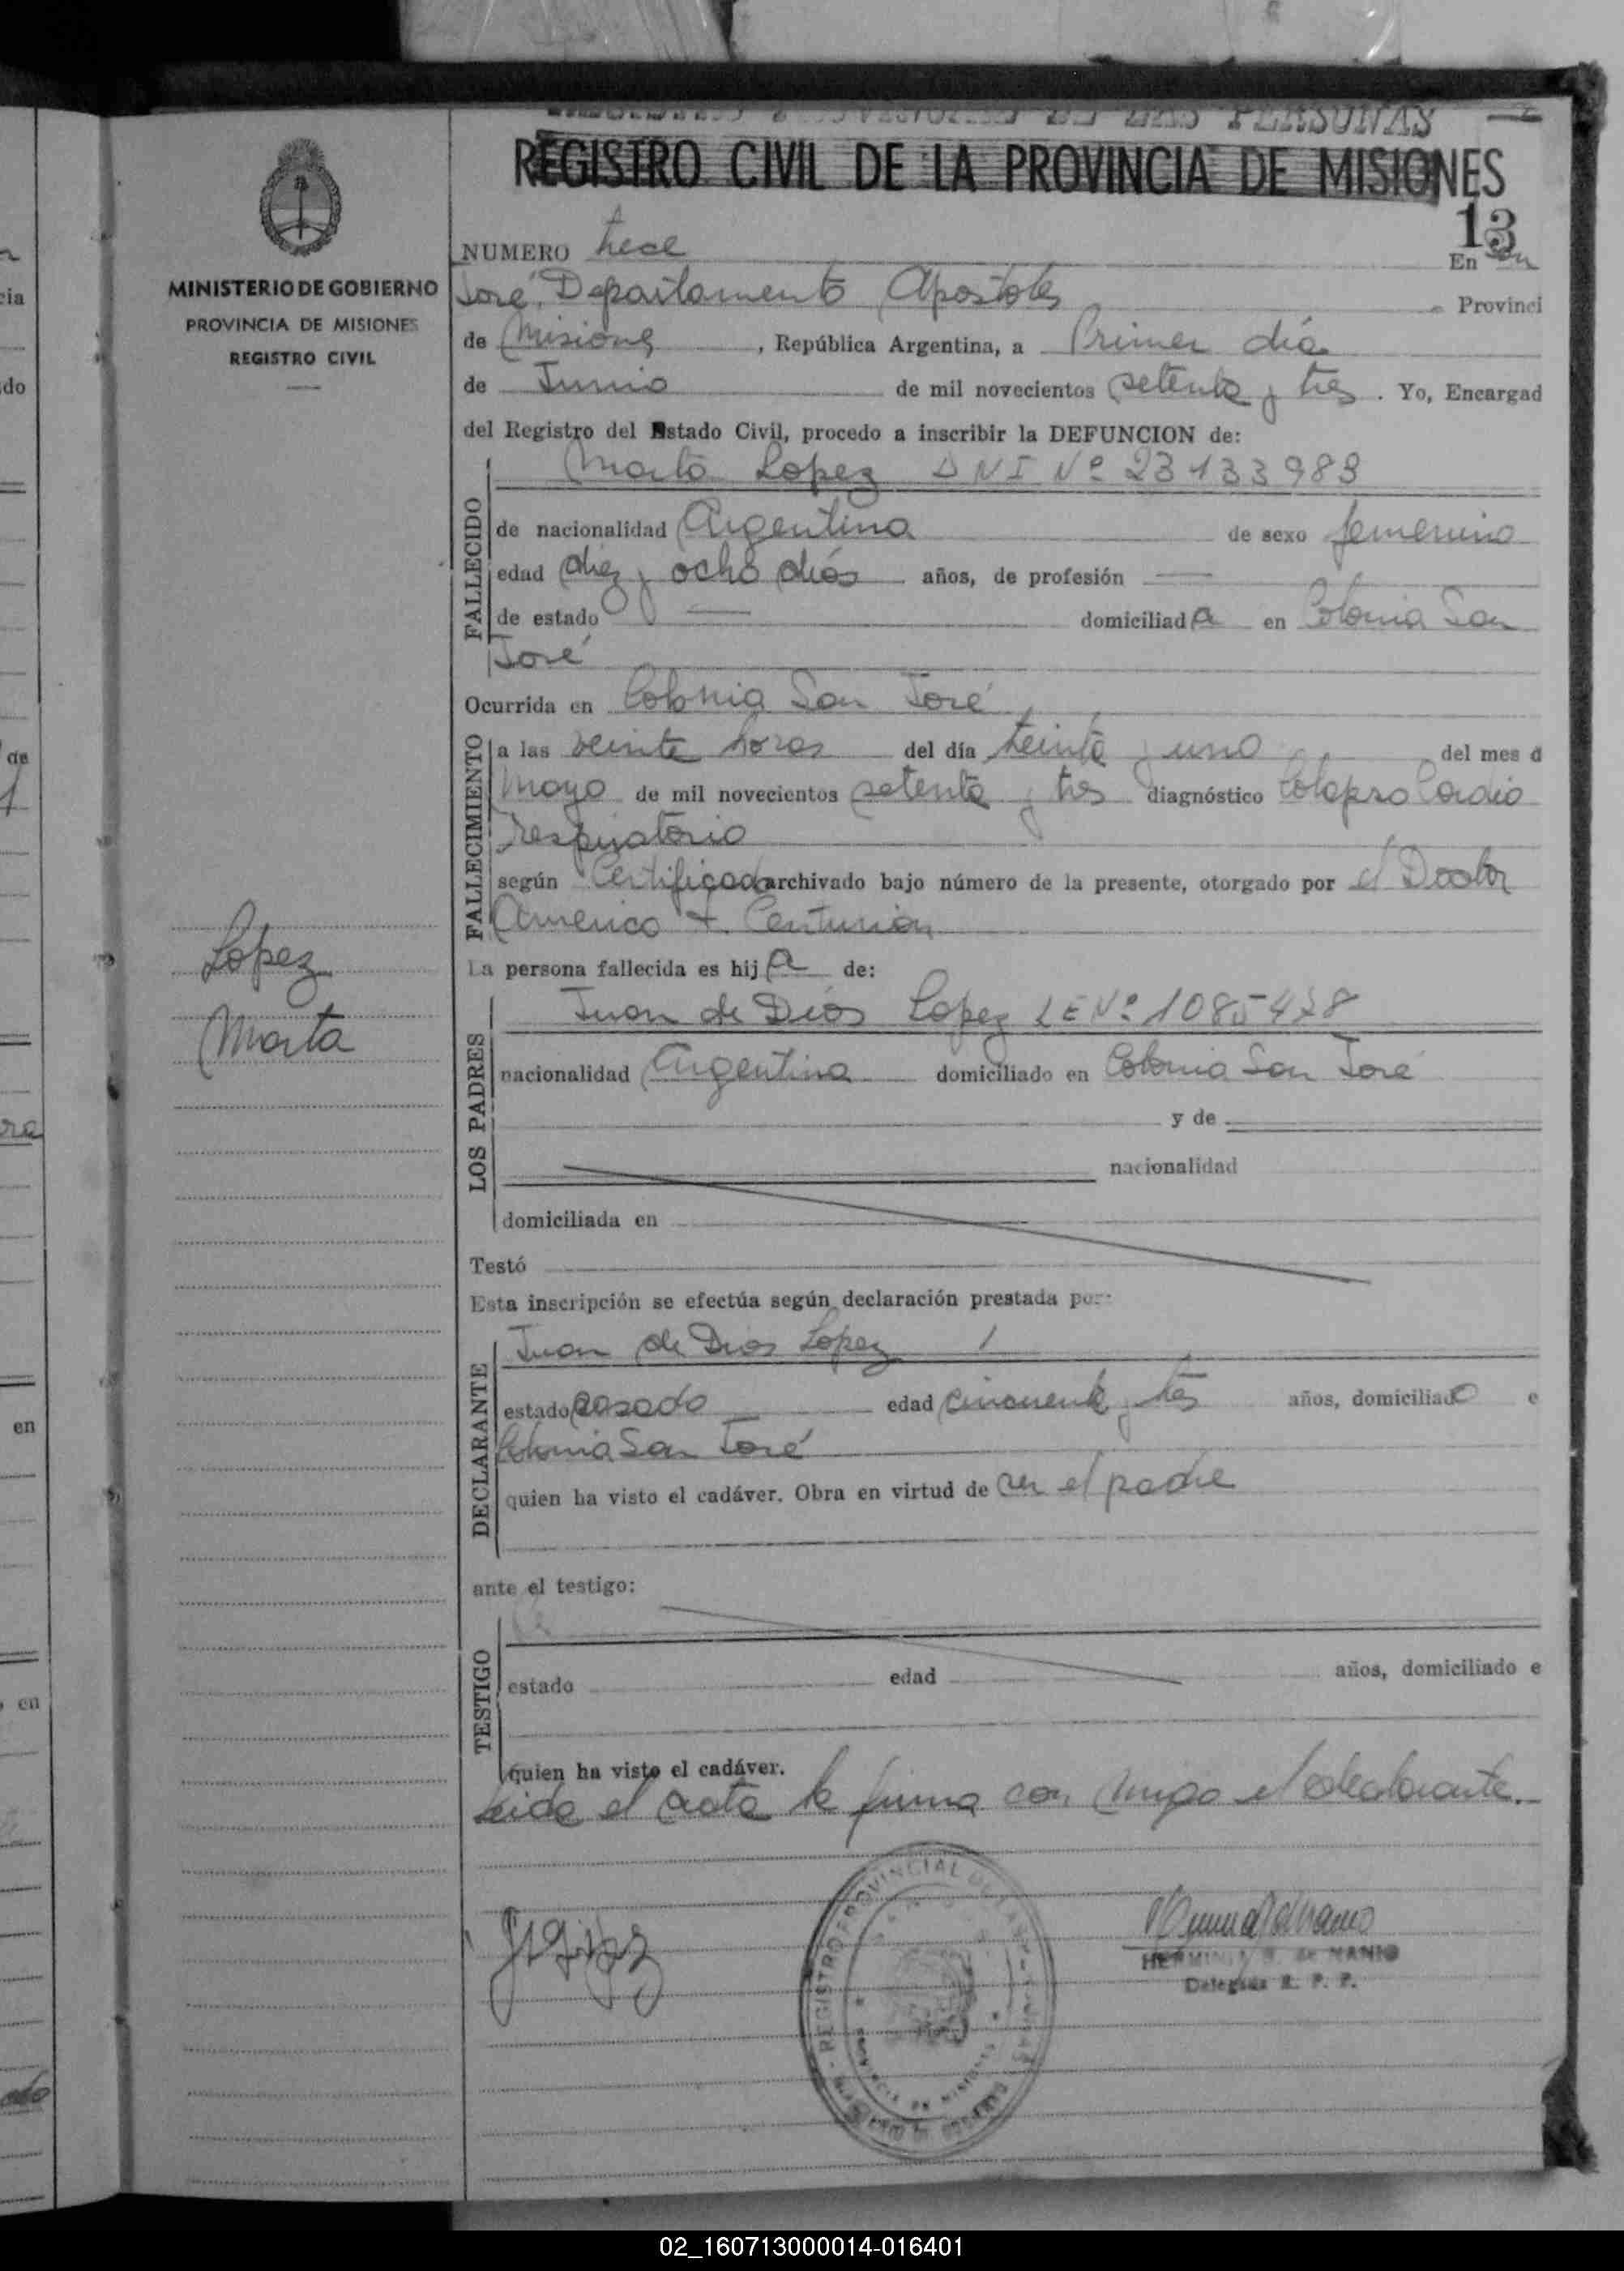 REGISTRO CIVIL DE LA PROVINCIA DE MISIONES
13
MINISTERIO DE GOBIERNO
PROVINCIA DE MISIONES
REGISTRO CIVIL
NUMERO trece En San
José, Departamento Apóstoles Provinci
de Misiones, República Argentina, a Primer día
de Junio de mil novecientos setenta y tres. Yo, Encargad
del Registro del Estado Civil, procedo a inscribir la DEFUNCION de:
Marta Lopez DNI Nº 23133983
FALLECIDO
de nacionalidad Argentina de sexo femenino
edad diez y ocho días años, de profesión —
de estado — domiciliada en Colonia San
José
Ocurrida en Colonia San José
FALLECIMIENTO
a las veinte horas del día treinta y uno del mes d
Mayo de mil novecientos setenta y tres diagnóstico Colapso Cardio
respiratorio
según Certificado archivado bajo número de la presente, otorgado por el Doctor
Americo Centurion
Lopez
Marta
La persona fallecida es hija de:
LOS PADRES
Juan de Dios Lopez LE Nº 1085428
nacionalidad Argentina domiciliado en Colonia San José
y de
nacionalidad
domiciliada en
Testó
Esta inscripción se efectúa según declaración prestada por:
DECLARANTE
Juan de Dios Lopez
estado casado edad cincuenta y tres años, domiciliado e
Colonia San José
quien ha visto el cadáver. Obra en virtud de ser el padre
ante el testigo:
TESTIGO
estado edad años, domiciliado e
quien ha visto el cadáver.
Leida el acta la firma con migo el declarante.
REGISTRO PROVINCIAL DE LAS
HERMINIA de NANIO
Delegada R. P. P.
02_160713000014-016401